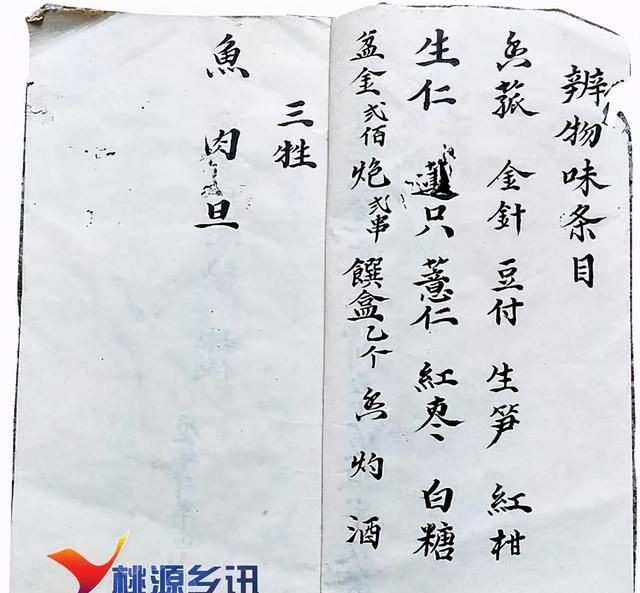 辨物味条目
香菰 金針 豆付 生笋 紅柑
生仁 蓮只 薏仁 紅枣 白糖
盆金弍佰 炮弍串 饌盒乙个 香 灼 酒
三牲
魚 肉 旦
桃源乡讯